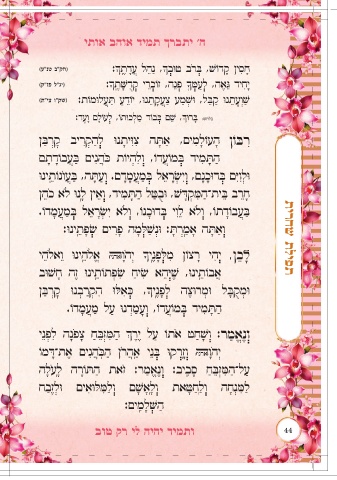 ה' יתברך תמיד אוהב אותי
חֲסִין קָדוֹשׁ, בְּרֹב טוּבְךָ, נַהֵל עֲדָתֶךָ:
יָחִיד גֵּאֶה, לְעַמְּךָ פְּנֵה, זוֹכְרֵי קְדֻשָּׁתֶךָ:
שַׁוְעָתֵנוּ קַבֵּל, וּשְׁמַע צַעֲקָתֵנוּ, יוֹדֵעַ תַּעֲלוּמוֹת:
בָּרוּךְ, שֵׁם כְּבוֹד מַלְכוּתוֹ, לְעוֹלָם וָעֶד:
רִבּוֹן הָעוֹלָמִים, אַתָּה צִוִּיתָנוּ לְהַקְרִיב קָרְבַּן
הַתָּמִיד בְּמוֹעֲדוֹ, וְלִהְיוֹת כֹּהֲנִים בַּעֲבוֹדָתָם
וּלְוִיִּם בְּדוּכָנָם, וְיִשְׂרָאֵל בְּמַעֲמָדָם. וְעַתָּה, בַּעֲוֹנוֹתֵינוּ
חָרַב בֵּית-הַמִּקְדָּשׁ, וּבֻטַּל הַתָּמִיד, וְאֵין לָנוּ לֹא כֹהֵן
בַּעֲבוֹדָתוֹ, וְלֹא לֵוִי בְּדוּכָנוֹ, וְלֹא יִשְׂרָאֵל בְּמַעֲמָדוֹ.
וְאַתָּה אָמַרְתָּ: וּנְשַׁלְּמָה פָרִים שְׂפָתֵינוּ:
לָכֵן, יְהִי רָצוֹן מִלְּפָנֶיךָ יְהֹוָה אֱלֹהֵינוּ וֵאלֹהֵי
אֲבוֹתֵינוּ, שֶׁיְּהֵא שִׂיחַ שִׂפְתוֹתֵינוּ זֶה חָשׁוּב
וּמְקֻבָּל וּמְרוּצֶה לְפָנֶיךָ, כְּאִלּוּ הִקְרַבְנוּ קָרְבַּן
הַתָּמִיד בְּמוֹעֲדוֹ, וְעָמַדְנוּ עַל מַעֲמָדוֹ.
וְנֶאֱמַר: וְשָׁחַט אֹתוֹ עַל יֶרֶךְ הַמִּזְבֵּחַ צָפֹנָה לִפְנֵי
יְהֹוָה וְזָרְקוּ בְּנֵי אַהֲרֹן הַכֹּהֲנִים אֶת-דָּמוֹ
עַל-הַמִּזְבֵּחַ סָבִיב: וְנֶאֱמַר: זֹאת הַתּוֹרָה לָעֹלָה
לַמִּנְחָה וְלַחַטָּאת וְלָאָשָׁם וְלַמִּלּוּאִים וּלְזֶבַח
הַשְּׁלָמִים:
ותמיד יהיה לי רק טוב
תפילת שחרית
44